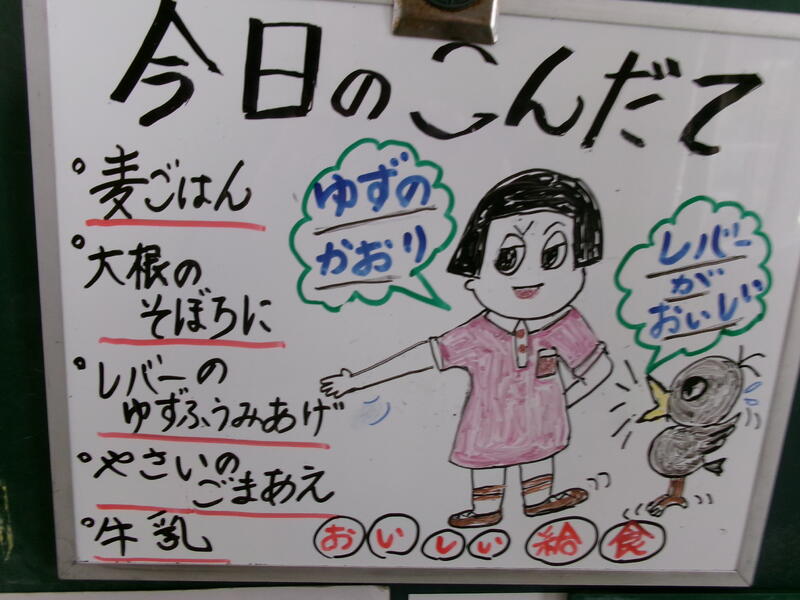 今日のこんだて
○麦ごはん
○大根の
そぼろに
○レバーの
ゆずふうみあげ
○やさいの
ごまあえ
○牛乳
ゆずの
かおり
レバー
が
おいしい
おいしい給食